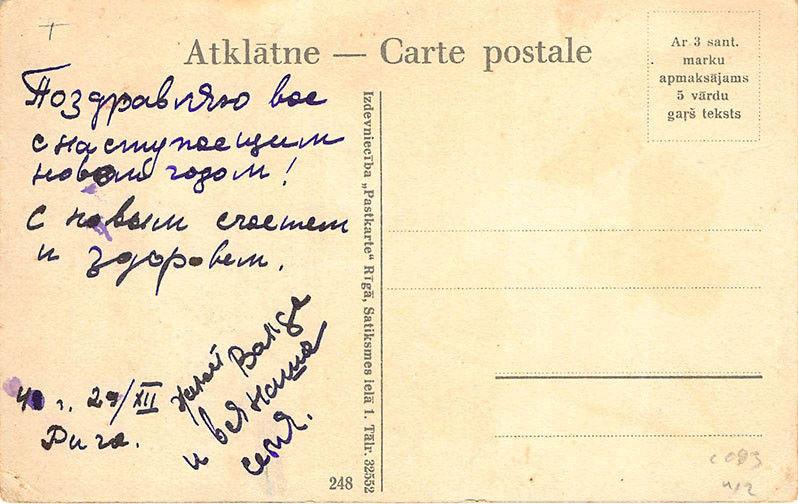 Atklātne — Carte postale
Ar 3 sant.
marku
apmaksājams
5 vārdu
gaŗš teksts
Поздравляю вас
с наступающим
новым годом!
С новым счастем
и здоровем.
Ванда
и вся наша
семя.
40 г. 29/XII
Рига.
Izdevniecība „Pastkarte“ Rīgā, Satiksmes ielā 1. Tālr. 32552
248